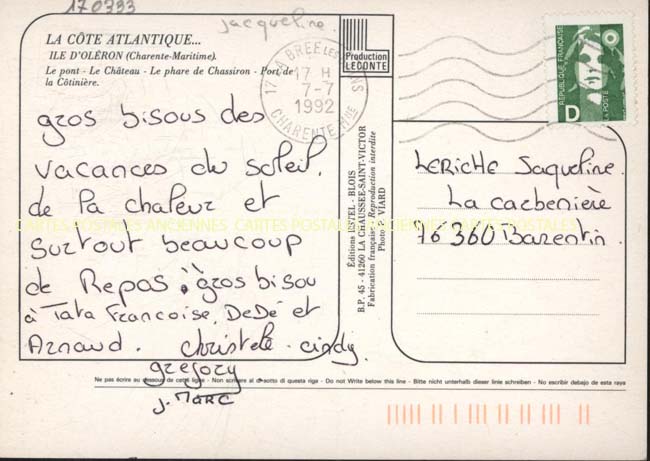 170333
jacqueline.
LA CÔTE ATLANTIQUE...
ILE D'OLÉRON (Charente-Maritime).
Le pont - Le Château - Le phare de Chassiron - Port de
la Côtinière.
Production
LECONTE
17 LA BREE LES BAINS
17 H
7-7
1992
CHARENTE MME
REPUBLIQUE FRANÇAISE
LA POSTE
D
gros bisous des
vacances du soleil.
de la chaleur et
surtout beaucoup
de Repas. gros bisou
à Tata Francoise, DeDé et
Arnaud. christele. cindy.
gregory
J-MARC
Éditions ESTEL - BLOIS
B.P. 45 - 41260 LA CHAUSSÉE-SAINT-VICTOR
Fabrication française - Reproduction interdite
Photo P. VIARD
LERICHE Jaqueline.
La carbenière
76360 Barentin.
CARTES POSTALES ANCIENNES CARTES POSTALES ANCIENNES CARTES POSTALES
Ne pas écrire au dessous de cette ligne - Non scrivere al di sotto di questa riga - Do not Write below this line - Bitte nicht unterhalb dieser linie schreiben - No escribir debajo de esta raya